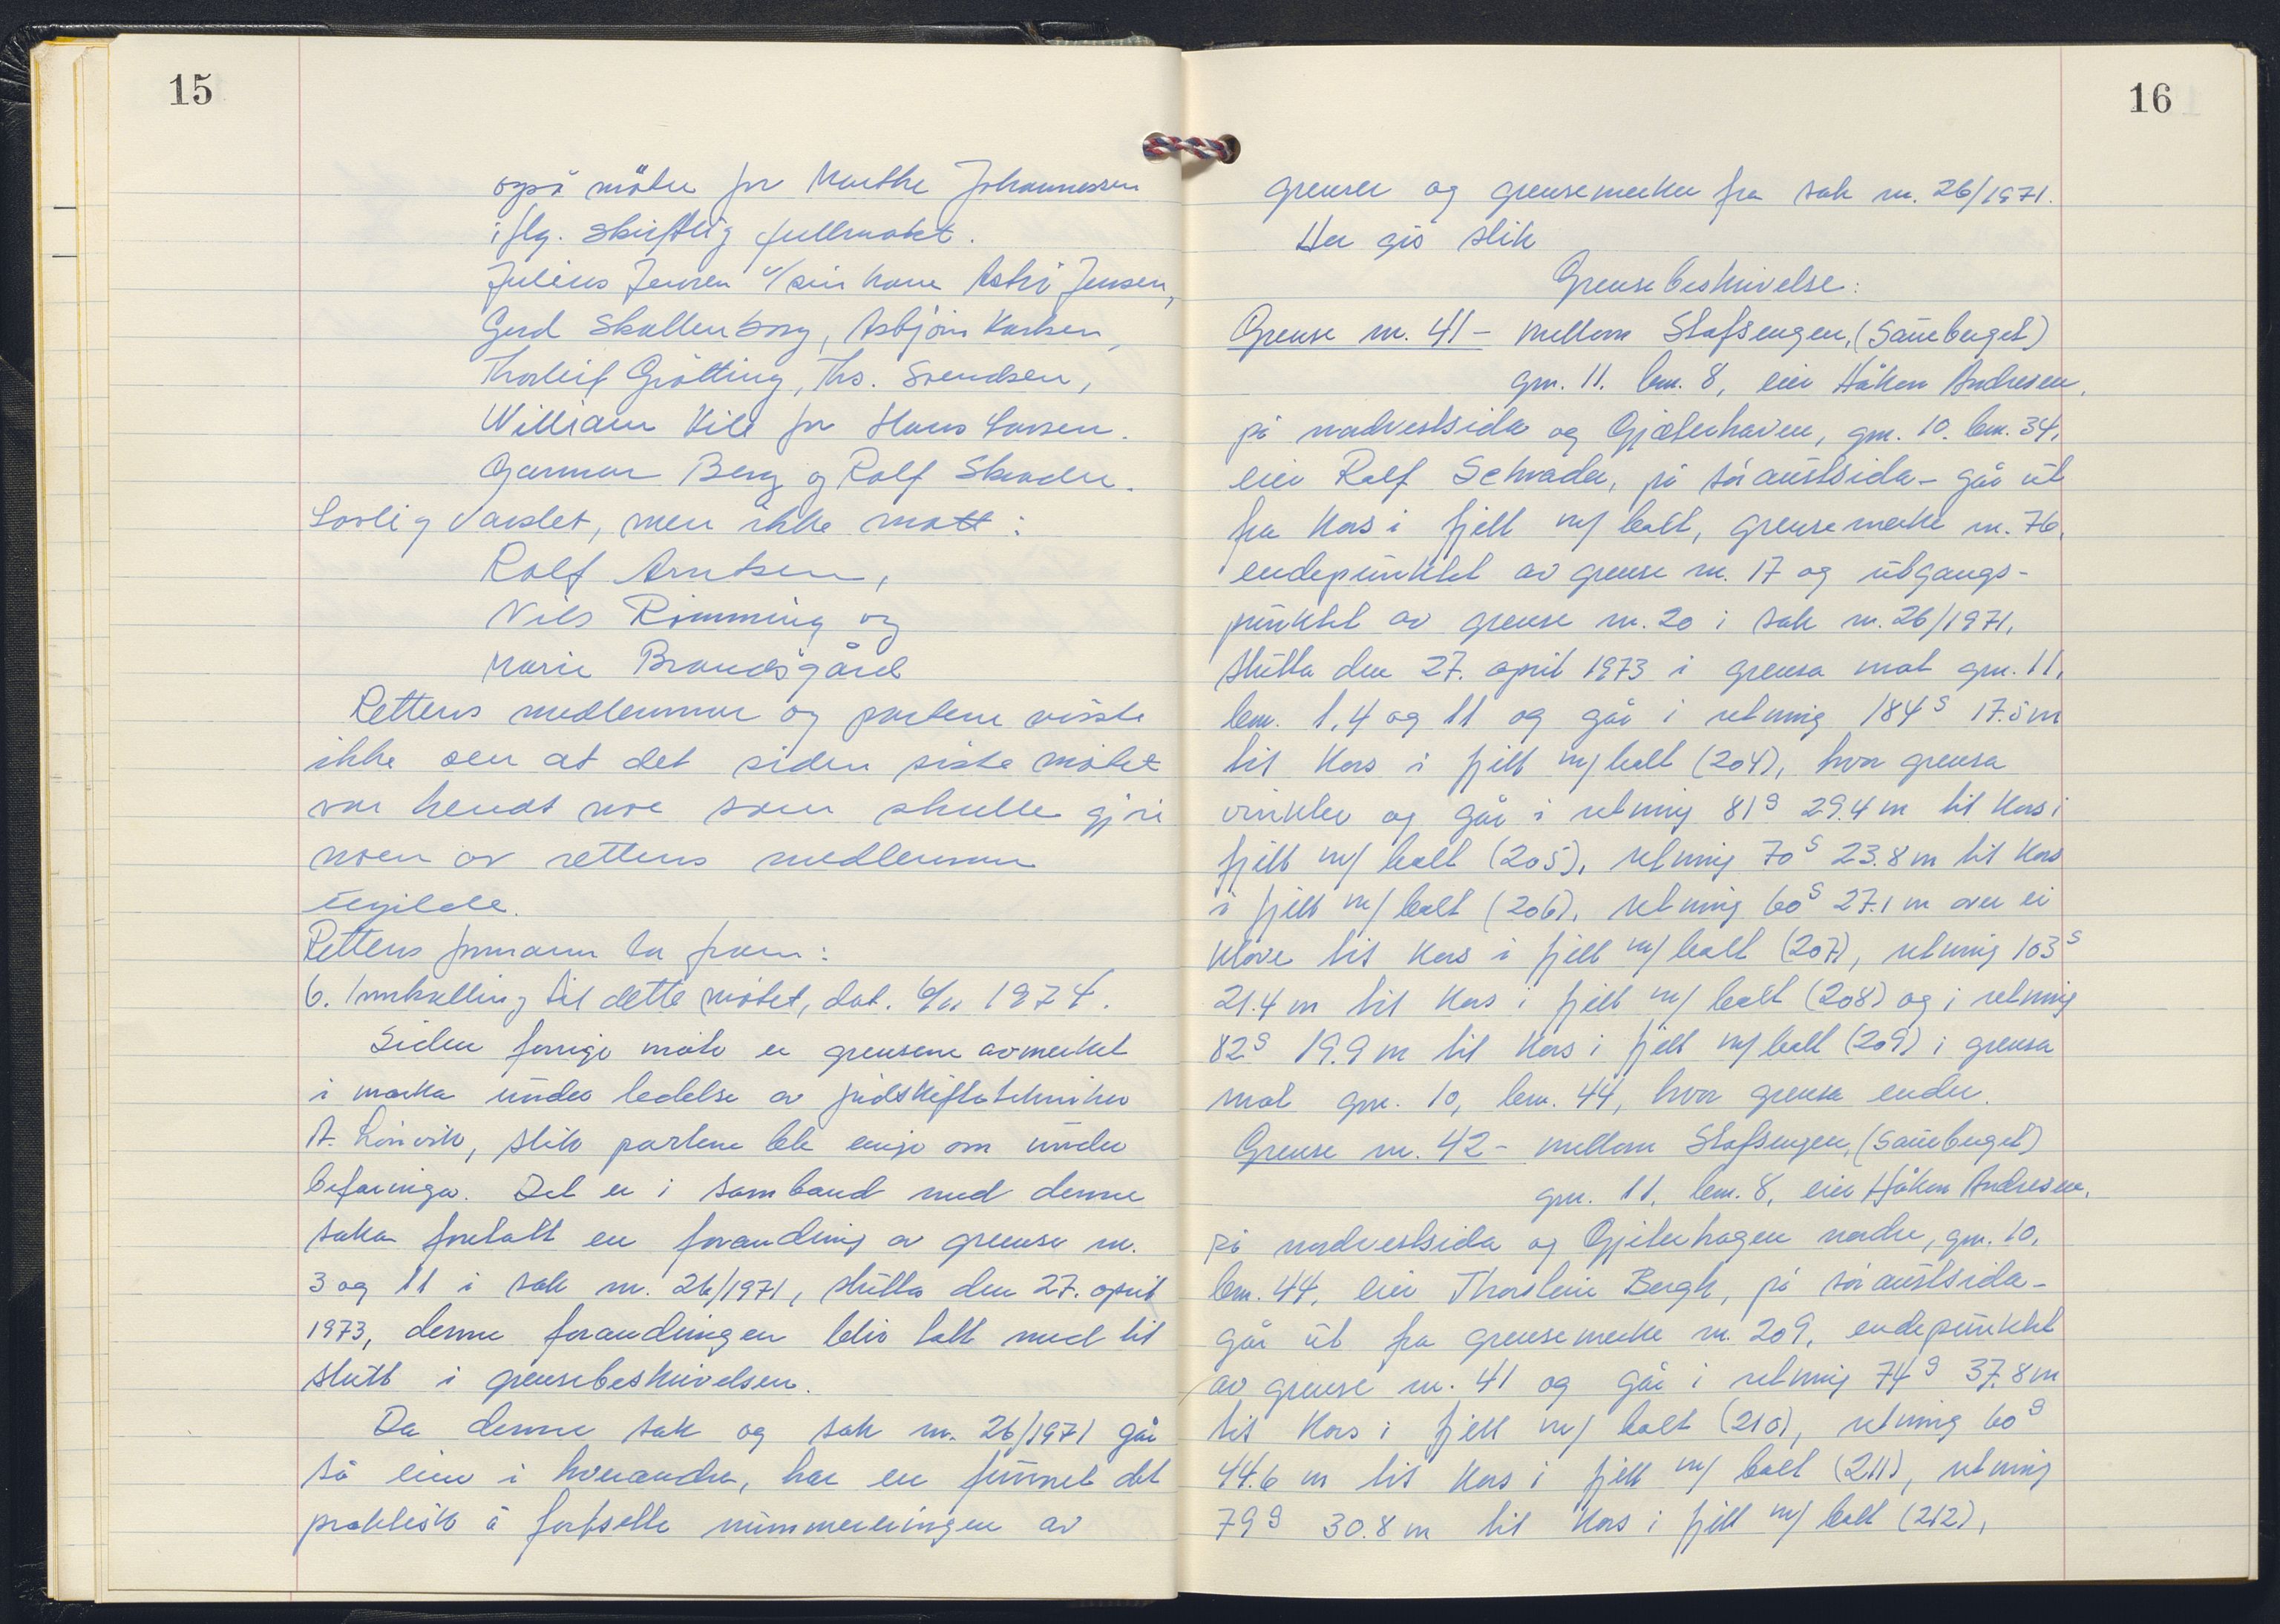 15
også møter for Marthe Johannessen
iflg. skriftlig fullmakt.
Julius Jensen v/sin kone Astri Jensen,
Gerd Skallenborg, Asbjørn Karlsen,
Thorleif Grøtting, Ths. Svendsen,
William Kile for Hans Larsen.
Gunnar Berg og Rolf Skrader.
Lovlig varslet, men ikke møtt:
Rolf Arntsen,
Nils Rømming og
Marie Brandsgård
Rettens medlemmer og partene visste
ikke om at det siden siste møtet
var hendt noe som skulle gjøre
noen av rettens medlemmer
ugilde.
Rettens formann la fram:
6. Innkalling til dette møtet, dat. 1974.
Siden forrige møte er grensene avmerket
i marka under ledelse av jordskiftetekniker
A. Lønvik, slik partene ble enige om under
befaringa. Det er i samband med denne
saka foretatt en forandring av grense nr.
3 og 11 i sak nr. 26/1971, slutta den 27. april
1973, denne forandringen blir tatt med til
slutt i grensebeskrivelsen.
Da denne sak og sak nr. 26/1971 går
så einn i hverandre, har en funnet det
praktisk å fortsette nummereringen av
16
grenser og grensemerker fra sak nr. 26/1971.
Her gis slik
Grensebeskrivelse:
Grense nr. 41 - mellom Slafsengen, (Saueberget)
gnr. 11. bnr. 8, eier Håkon Andresen,
på nordvestsida og Gjeterhaven, gnr. 10. bnr. 34,
eier Rolf Schrader, på søraustsida - går ut
fra kors i fjell m/ bolt, grensemerke nr. 76,
endepunktet av grense nr. 17 og utgangs-
punktet av grense nr. 20 i sak nr. 26/1971,
slutta den 27. april 1973 i grensa mot gnr. 11,
bnr. 1, 4 og 11 og går i retning 184g 17.5 m
til kors i fjell m/ bolt (204), hvor grensa
vinkler og går i retning 81g 29.4 m til kors i
fjell m/ bolt (205), retning 70g 23.8 m til kors
i fjell m/ bolt (206), retning 60g 27.1 m over ei
kløve til kors i fjell m/ bolt (207), retning 103g
21.4 m til kors i fjell m/ bolt (208) og i retning
82g 19.9 m til kors i fjell m/ bolt (209) i grensa
mot gnr. 10, bnr. 44, hvor grensa ender.
Grense nr. 42 - mellom Slafsengen, (Saueberget)
gnr. 11, bnr. 8, eier Håkon Andresen,
på nordvestsida og Gjeterhagen nordre, gnr. 10,
bnr. 44, eier Thorstein Bergh, på søraustsida -
går ut fra grensemerke nr. 209, endepunktet
av grense nr. 41 og går i retning 74g 37.8 m
til kors i fjell m/ bolt (210), retning 60g
44.6 m til kors i fjell m/ bolt (211), retning
79g 30.8 m til kors i fjell m/ bolt (212),